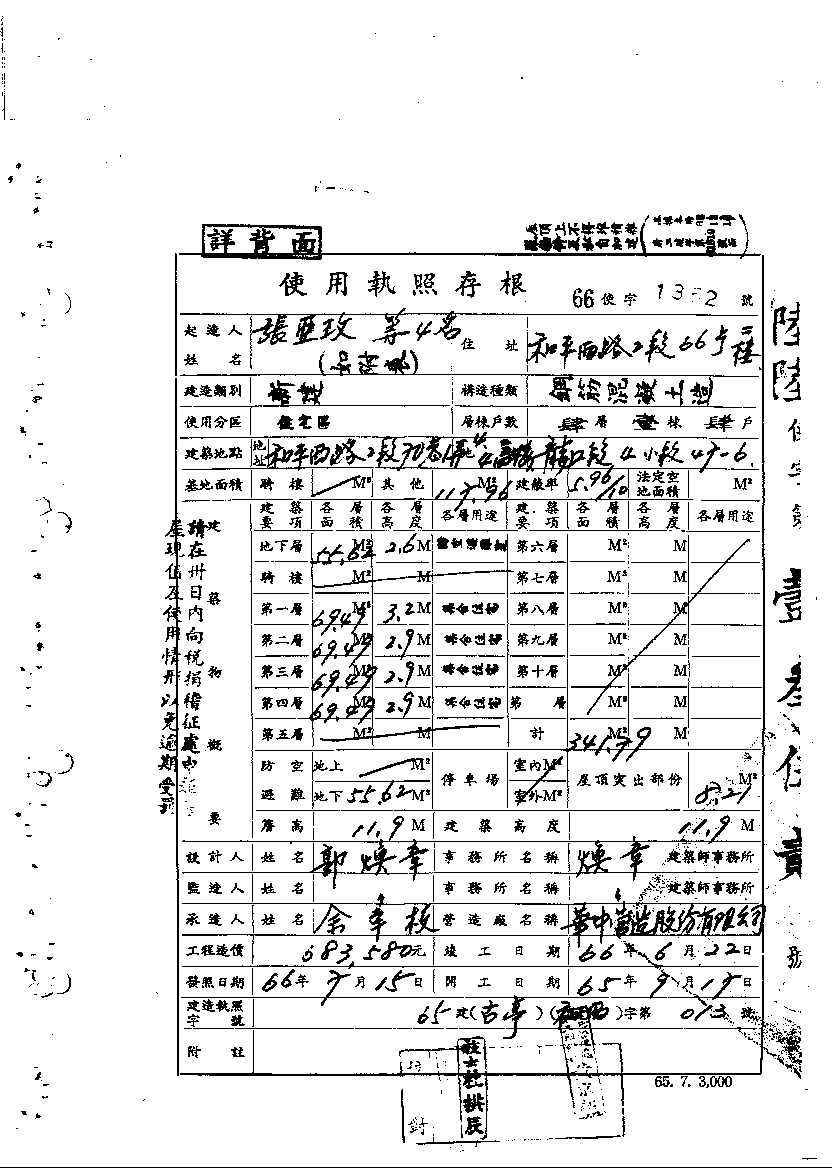 詳背面
使用執照存根
66使字1352號
起造人姓名 張亞玫 等4名 住址 和平西路2段66号二樓
建造類別 新建 構造種類 鋼筋混凝土造
使用分區 住宅區 層棟戶數 肆層壹棟肆戶
建築地點 地址 和平西路2段70巷 龍口段4小段
基地面積 騎樓 M² 其他 M² 建蔽率 5.96/10 法定空地面積 M²
建築要項 各層面積 各層高度 各層用途 建築要項 各層面積 各層高度 各層用途
地下層 55.62 M² 2.6 M 第六層 M² M
騎樓 M² M 第七層 M² M
第一層 69.49 M² 3.2 M 集合住宅 第八層 M² M
第二層 69.49 M² 2.9 M 集合住宅 第九層 M² M
第三層 69.49 M² 2.9 M 集合住宅 第十層 M² M
第四層 69.49 M² 2.9 M 集合住宅 第 層 M² M
第五層 M² M 計 M² M
建築物概要
防空避難 地上 M² 地下 55.62 M² 停車場 室內M² 室外M² 屋頂突出部份 8.21 M²
簷高 11.9 M 建築高度 11.9 M
設計人 姓名 郭煥章 事務所名稱 煥章 建築師事務所
監造人 姓名 事務所名稱 建築師事務所
承造人 姓名 營造廠名稱 華中營造股份有限公司
工程造價 683,580元 竣工日期 66年6月22日
發照日期 66年7月15日 開工日期 65年9月17日
建造執照字號 65建(古亭)( )字第013號
附註
65. 7. 3,000
請在卅日內向稅捐稽征處申
屋現值及使用情形以免逾期受罰
陸陸使字第壹叁伍貳號
校對